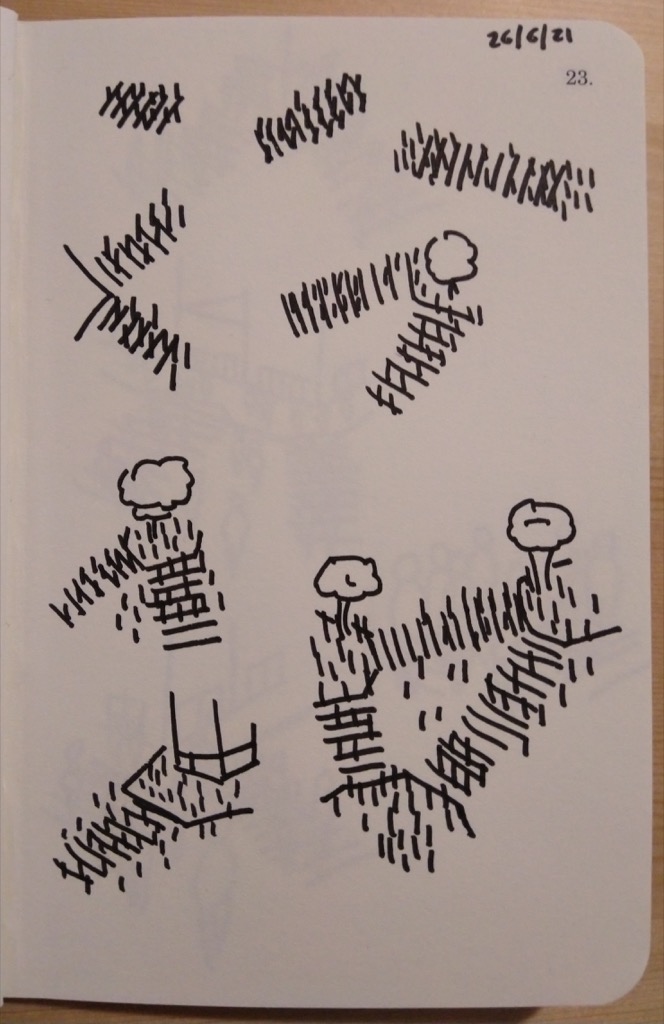 26/6/21
23.